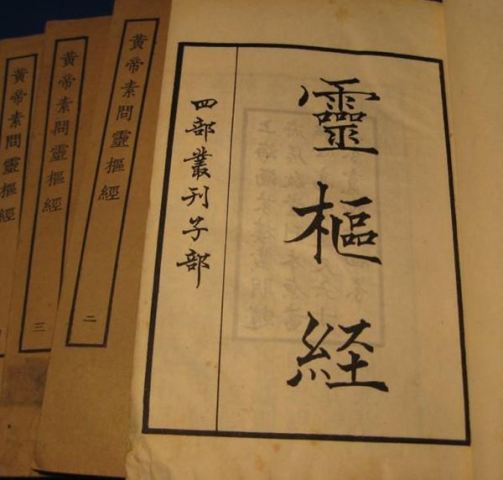 靈樞経
四部叢刊子部
黃帝素問靈樞經
二
黃帝素問靈樞經
三
黃帝素問靈樞經